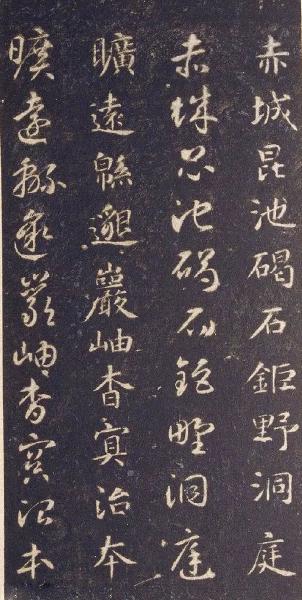 赤城昆池碣石鉅野洞庭
赤城昆池碣石鉅野洞庭
曠遠緜邈巖岫杳冥治本
曠遠緜邈巖岫杳冥治本